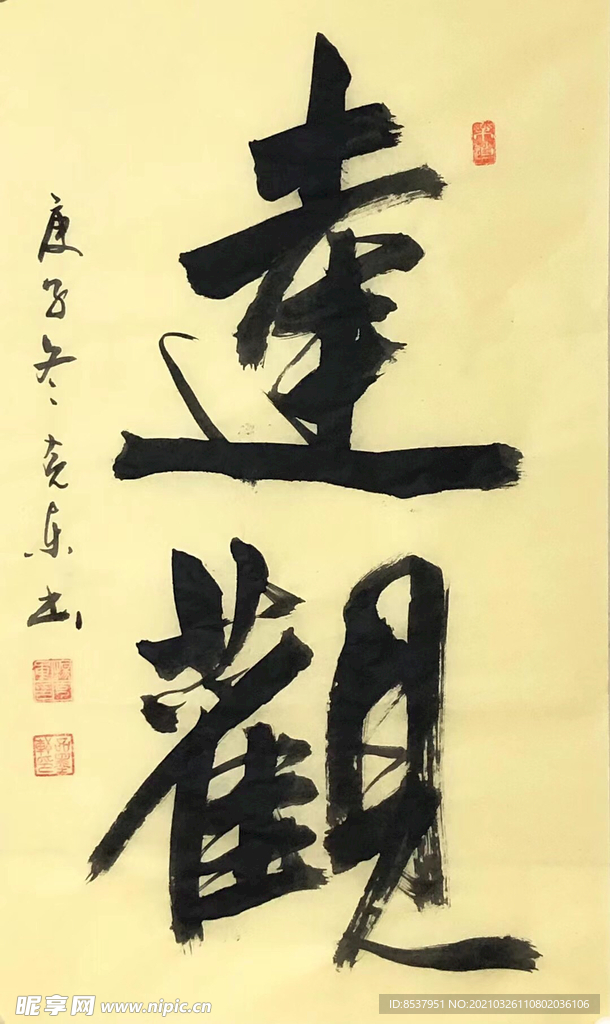 達觀
庚子冬克东书
昵享网 www.nipic.cn
ID:8537951 NO:20210326110802036106